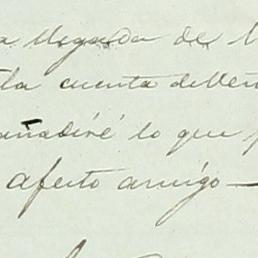 a llegada de
la cuenta
añadiré lo que
afecto amigo —